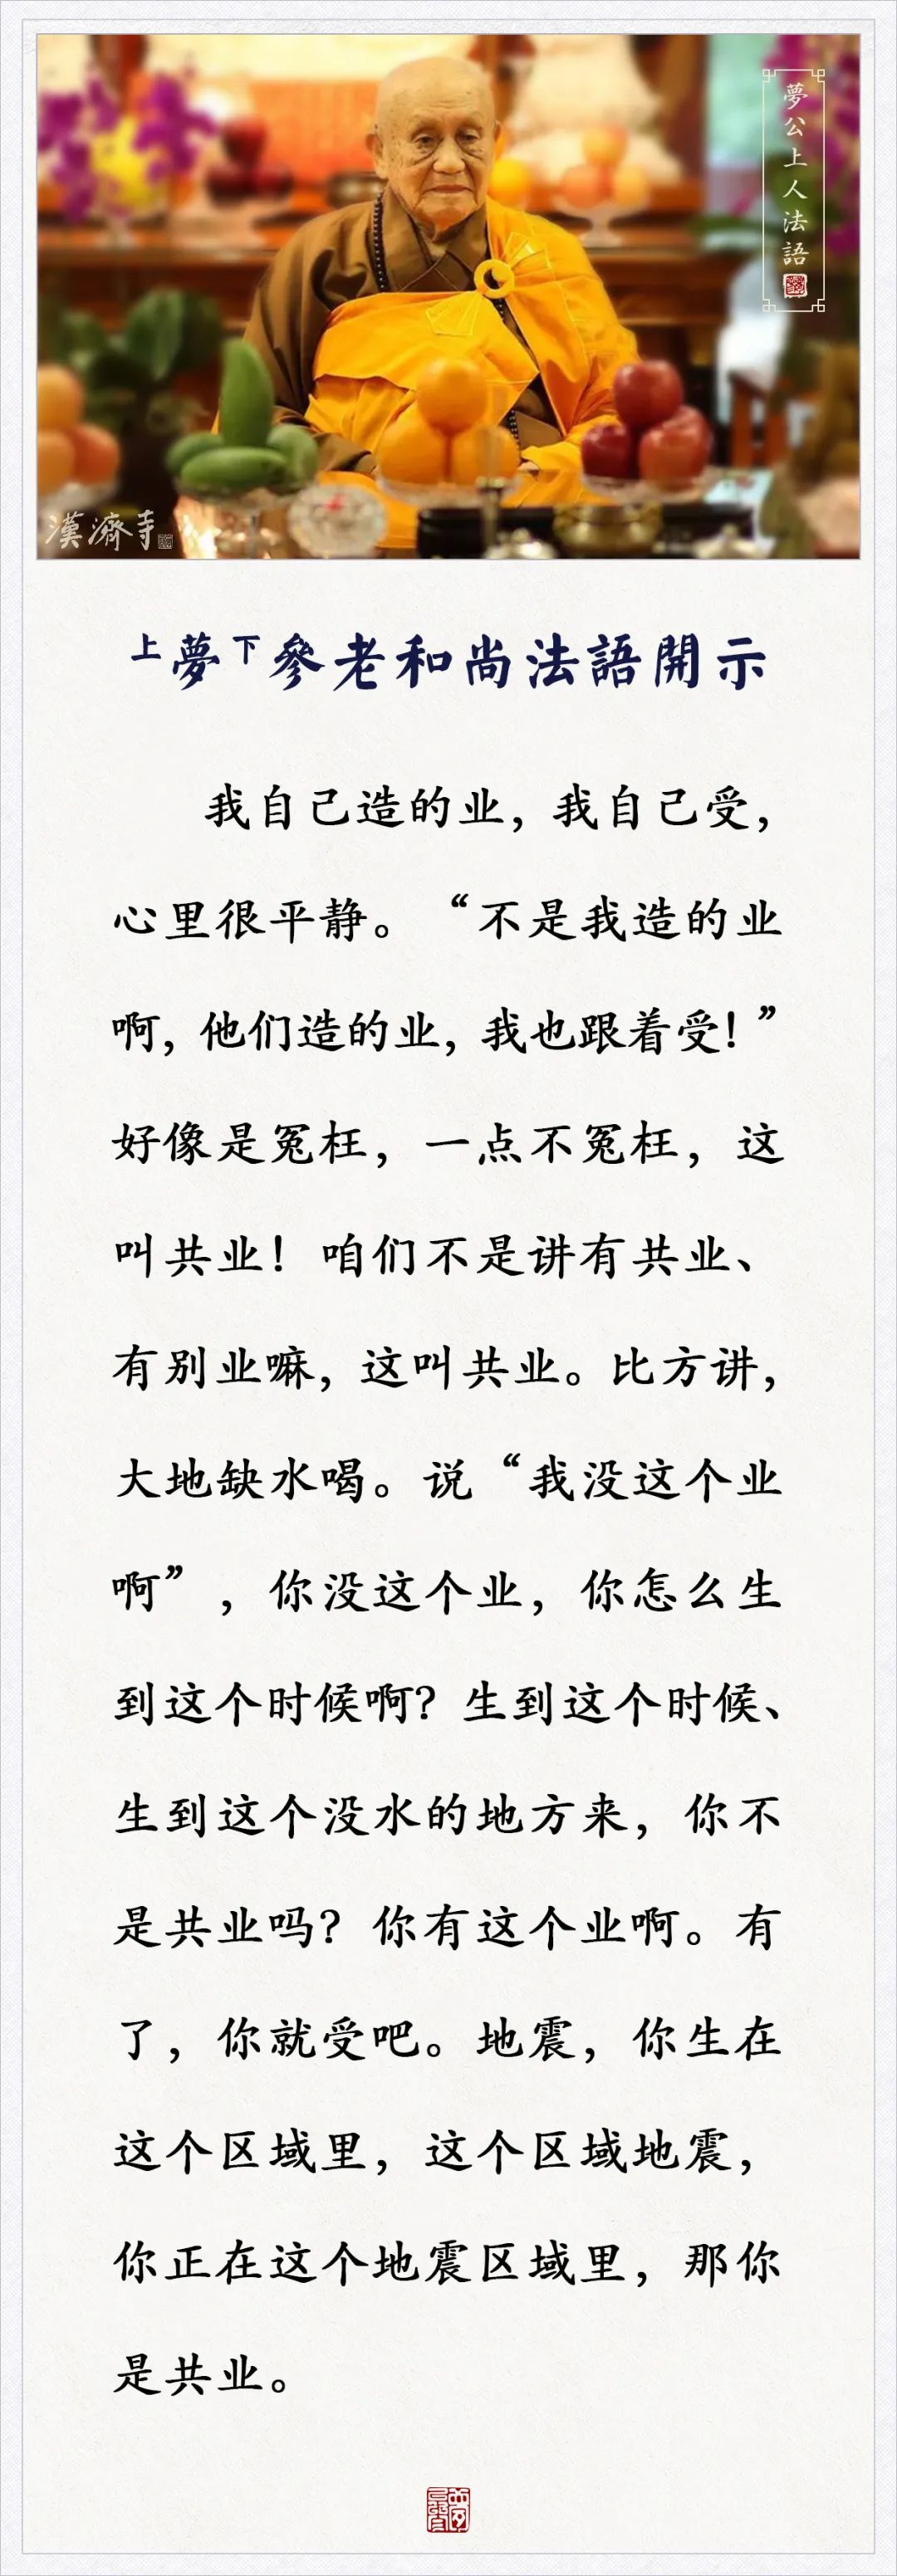 夢公上人法語
漢濟寺
上夢下參老和尚法語開示
我自己造的业，我自己受，
心里很平静。“不是我造的业
啊，他们造的业，我也跟着受！”
好像是冤枉，一点不冤枉，这
叫共业！咱们不是讲有共业、
有别业嘛，这叫共业。比方讲，
大地缺水喝。说“我没这个业
啊”，你没这个业，你怎么生
到这个时候啊？生到这个时候、
生到这个没水的地方来，你不
是共业吗？你有这个业啊。有
了，你就受吧。地震，你生在
这个区域里，这个区域地震，
你正在这个地震区域里，那你
是共业。